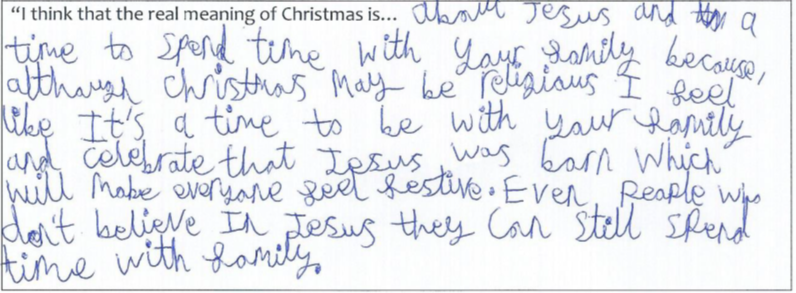 "I think that the real meaning of Christmas is... about Jesus and a
time to spend time with your family because,
although christmas may be religious I feel
like It's a time to be with your family
and celebrate that Jesus was born which
will make everyone feel festive. Even people who
don't believe In Jesus they can still spend
time with family.